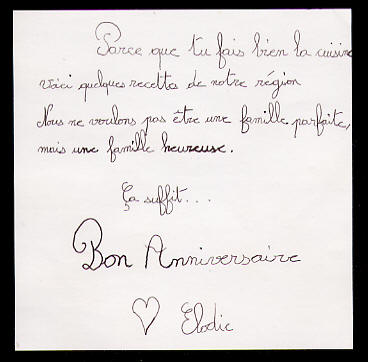 Parce que tu fais bien la cuisine
voici quelques recettes de notre région
Nous ne voulons pas être une famille parfaite,
mais une famille heureuse.
Ça suffit...
Bon Anniversaire
♡ Elodie